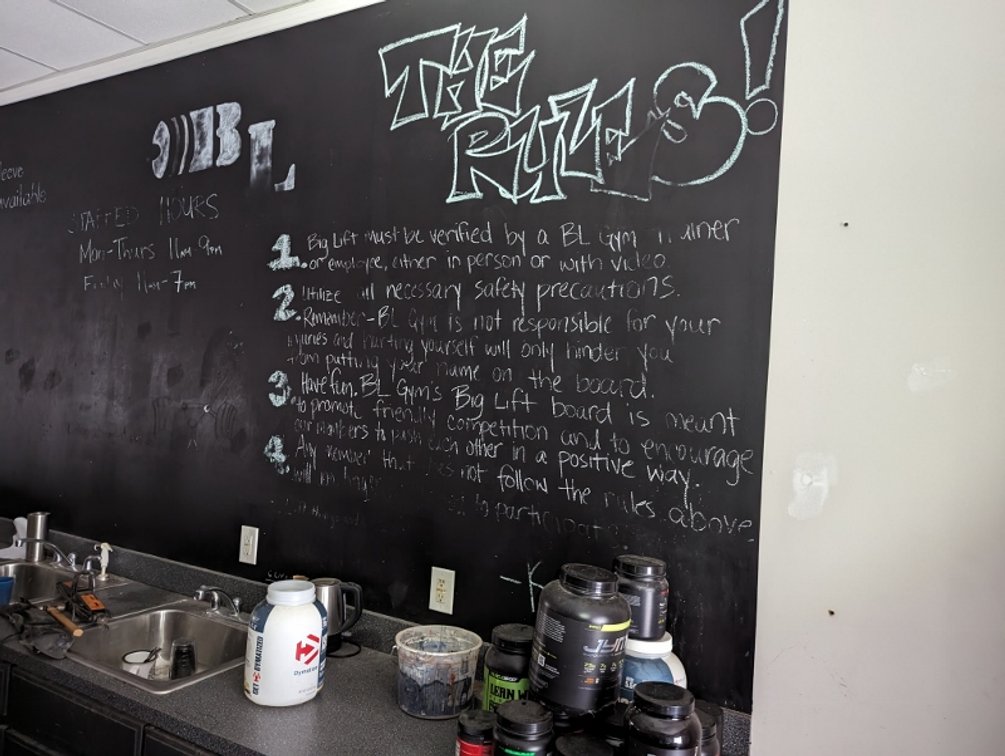 THE
RULES!
BL
leave
available
STAFFED HOURS
Mon-Thurs 11am-9pm
Friday 11am-7pm
1. Big Lift must be verified by a BL Gym Trainer
or employee, either in person or with video.
2. Utilize all necessary safety precautions.
Remember-BL Gym is not responsible for your
injuries and hurting yourself will only hinder you
from putting your name on the board.
3. Have fun. BL Gym's Big Lift board is meant
to promote friendly competition and to encourage
our members to push each other in a positive way.
4. Any member that does not follow the rules above
will no longer to participate
-K
GET DYMATIZED
Dymatize
JYM
LEAN